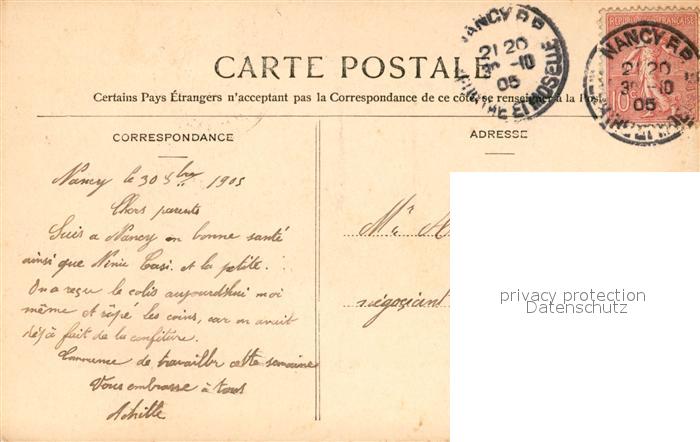 CARTE POSTALE
Certains Pays Étrangers n'acceptent pas la Correspondance de ce côté, se renseigner à la Post
CORRESPONDANCE
ADRESSE
Nancy le 30 1905
Chers parents
Suis a Nancy en bonne santé
ainsi que Ninie et la petite.
On a reçu le colis aujourd'hui moi
même et râpé les coins, car on avait
déjà fait de la confiture.
Commence de travailler cette semaine
Vous embrasse à tous
Achille
Mr A
négociant
NANCY R.P.
21 20
30 -10
05
MEURTHE ET MOSELLE
REPUBLIQUE FRANÇAISE
10c
NANCY R.P.
21 20
30 -10
05
privacy protection
Datenschutz